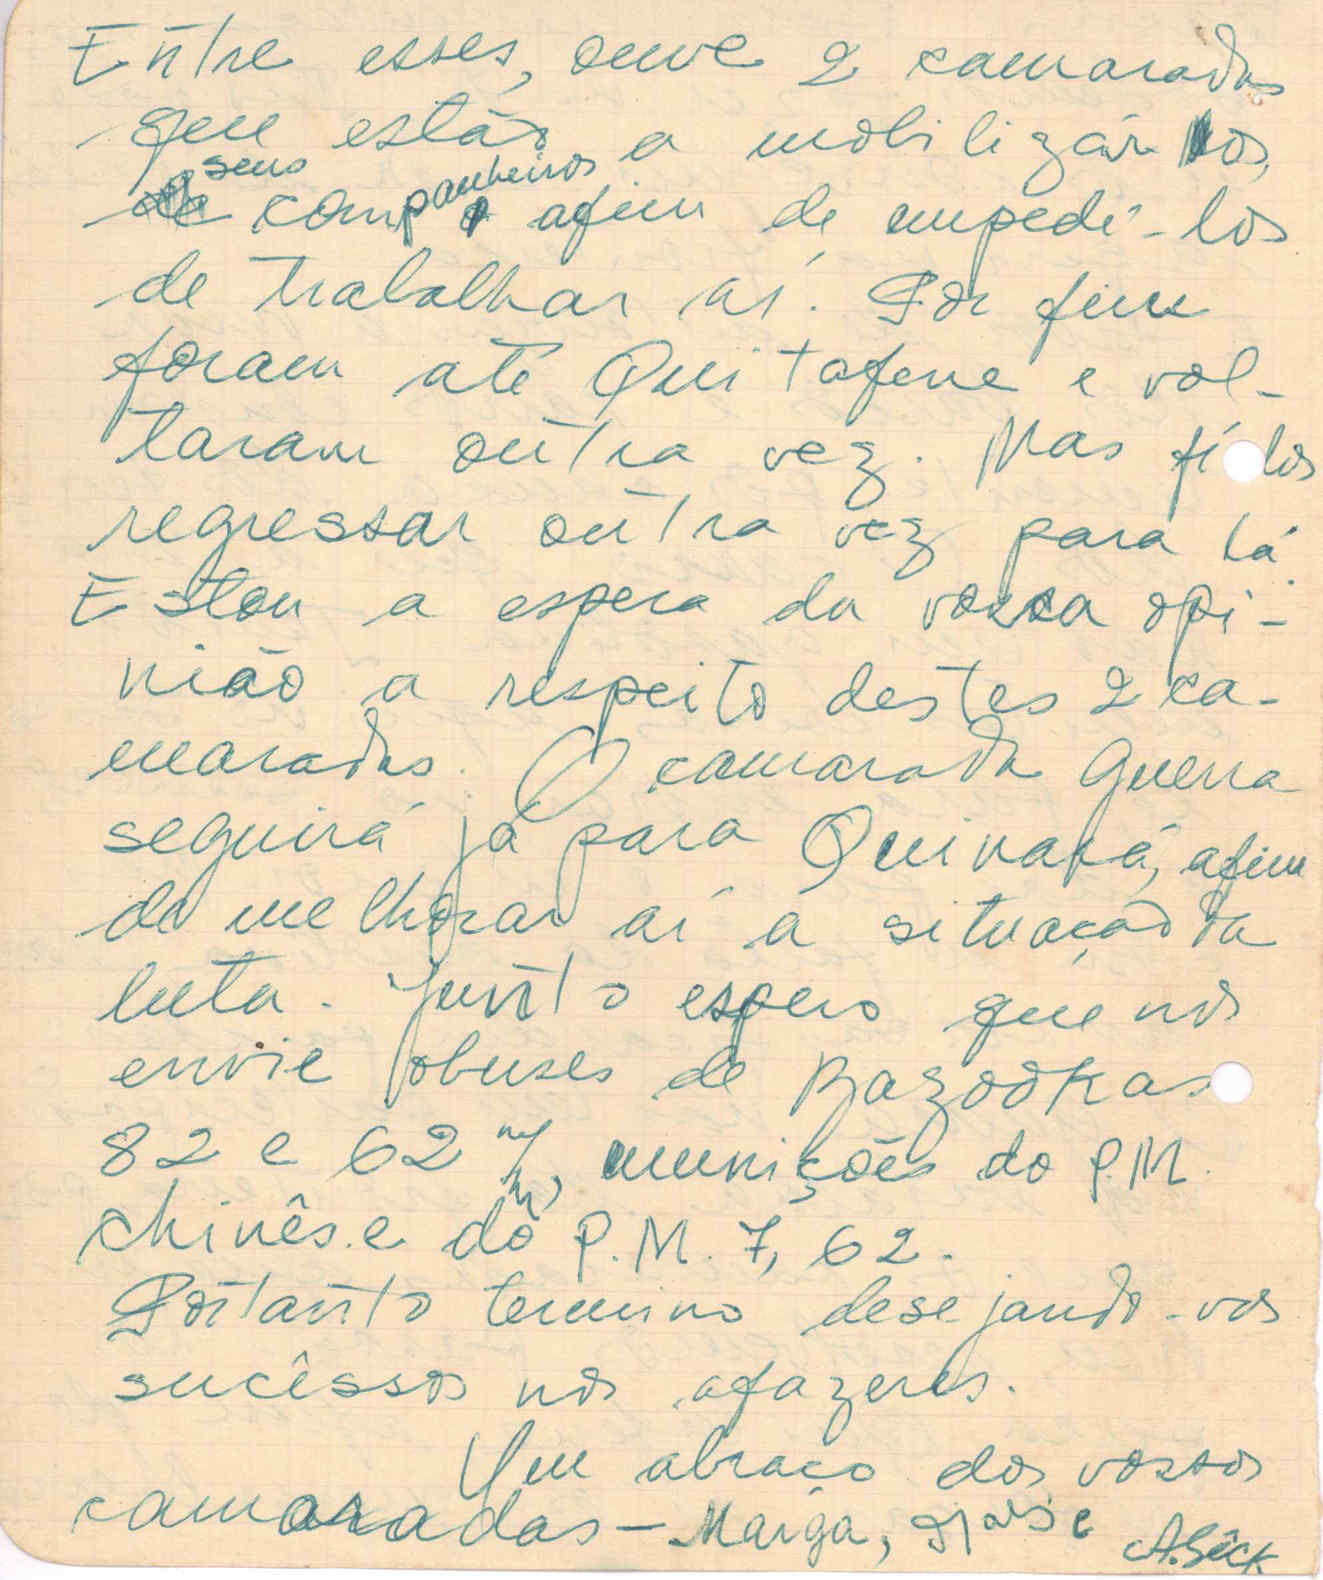 Entre esses, ouve 2 camaradas
que estão a mobilizár os
seus companheiros afim de empedí-los
de trabalhar aí. Por fim
foram até Quitafene e vol-
taram outra vez. Mas fí-los
regressar outra vez para lá
Estou a espera da vossa opi-
nião a respeito destes 2 ca-
maradas. O camarada Guerra
seguirá já para Quinará, afim
de melhorar aí a situação da
luta. Junto espero que nos
envie obuses de Bazookas
82 e 62 m/m, munições do P.M.
chinês e do P.M. 7,62.
Portanto termino desejando-vos
sucêssos nos afazeres.
Um abraço dos vossos
camaradas — Maiga, e A. Seck